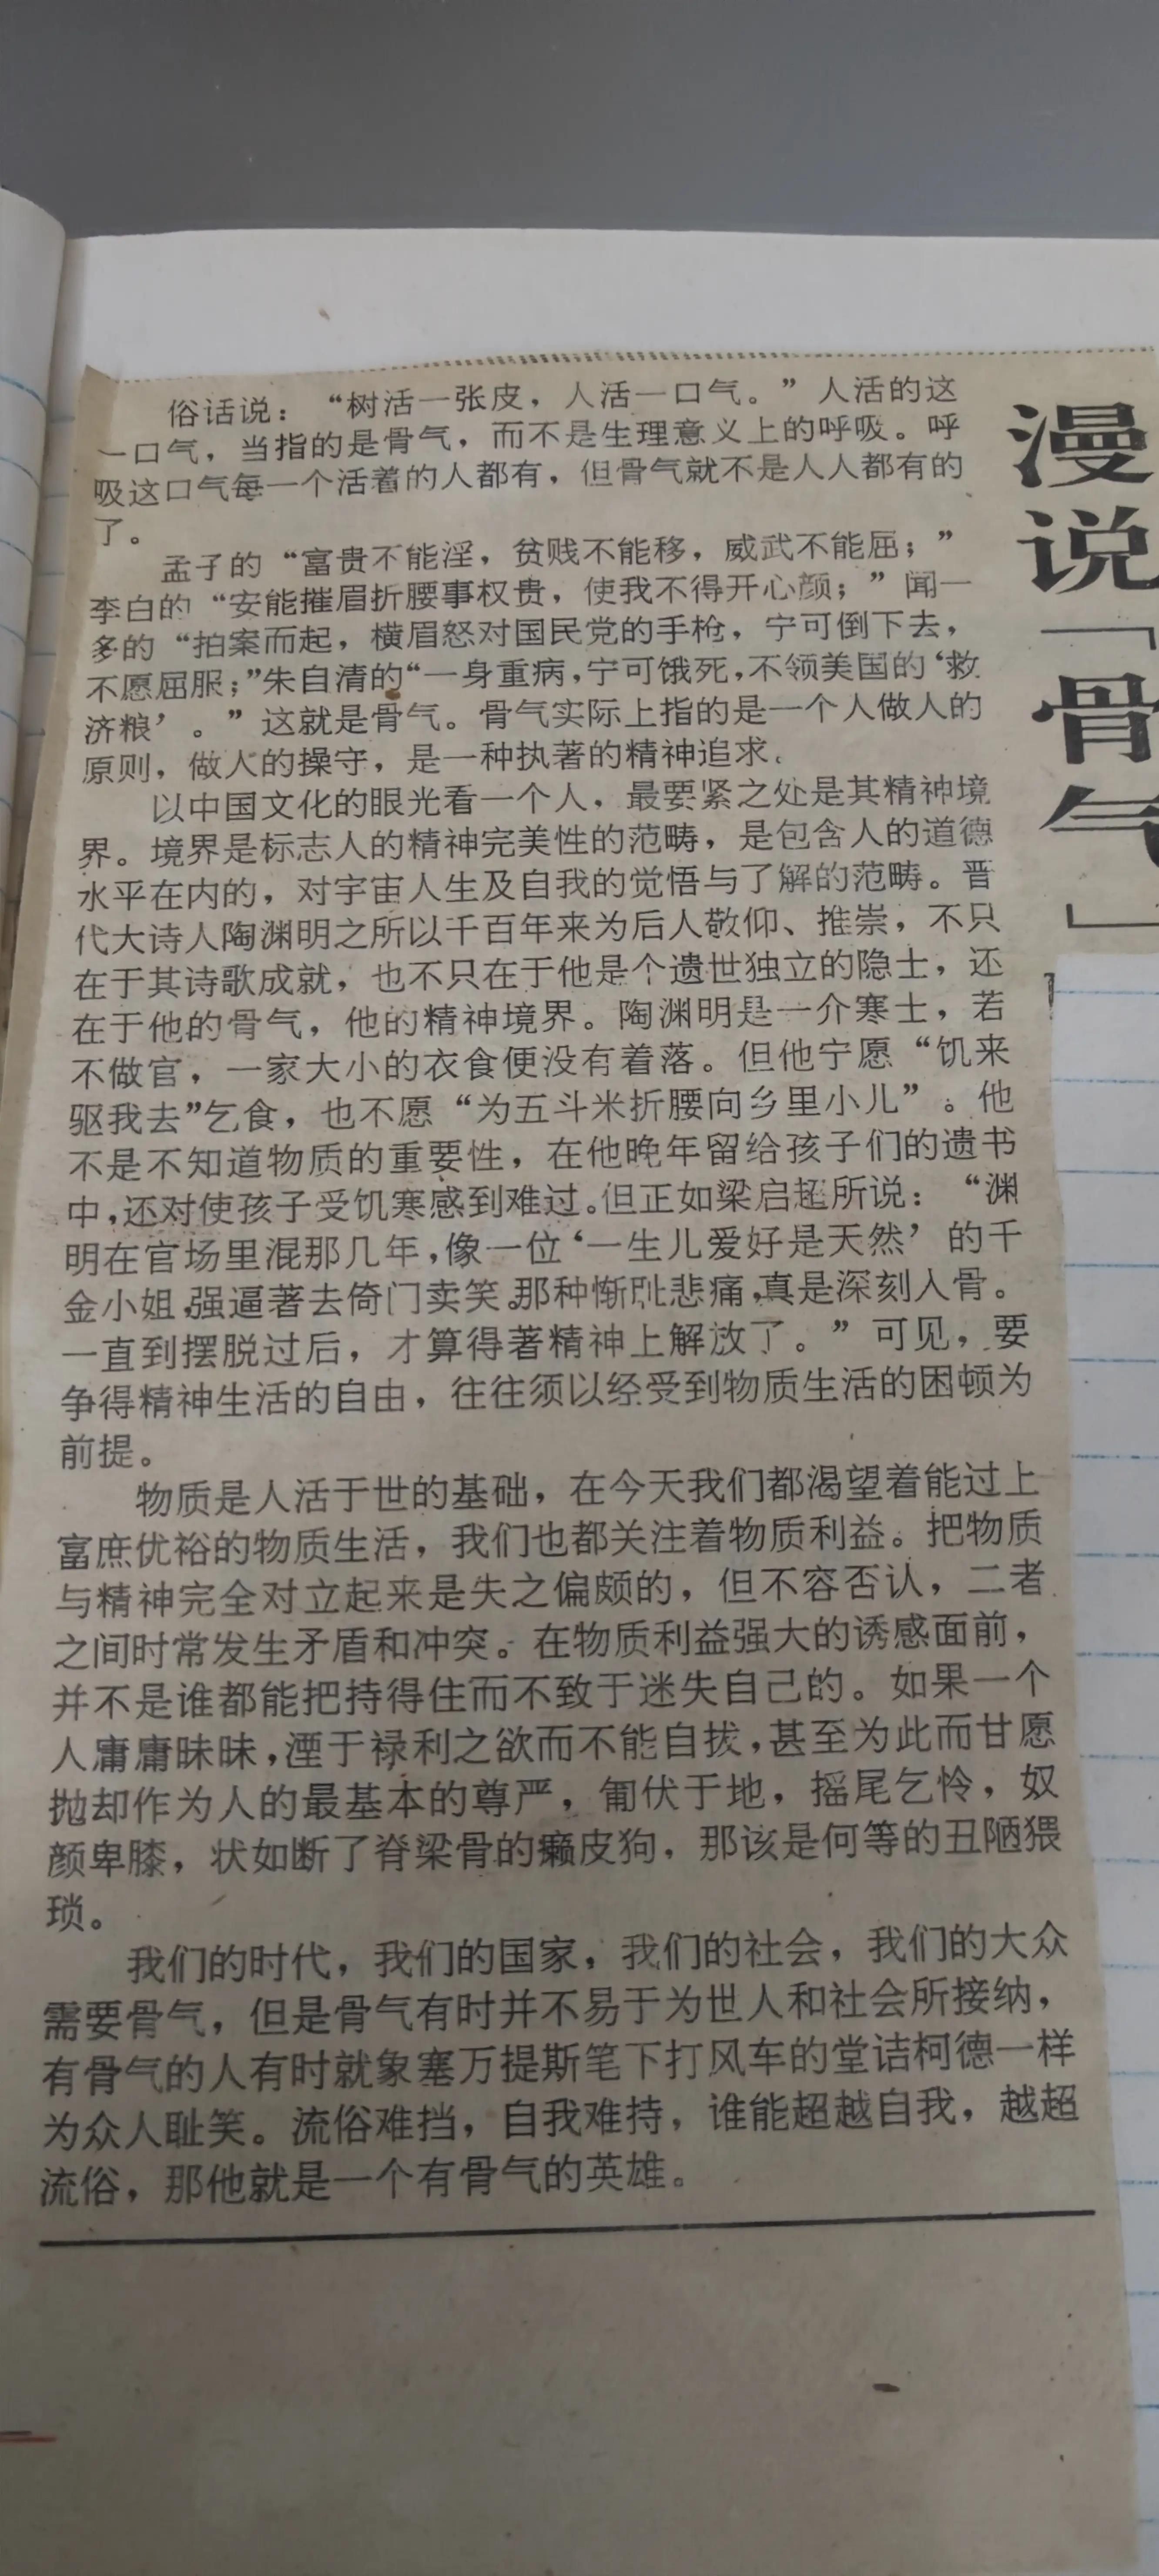 漫说「骨气」
俗话说：“树活一张皮，人活一口气。”人活的这
一口气，当指的是骨气，而不是生理意义上的呼吸。呼
吸这口气每一个活着的人都有，但骨气就不是人人都有的
了。
孟子的“富贵不能淫，贫贱不能移，威武不能屈；”
李白的“安能摧眉折腰事权贵，使我不得开心颜；”闻一
多的“拍案而起，横眉怒对国民党的手枪，宁可倒下去，
不愿屈服；”朱自清的“一身重病，宁可饿死，不领美国的‘救
济粮’。”这就是骨气。骨气实际上指的是一个人做人的
原则，做人的操守，是一种执著的精神追求。
以中国文化的眼光看一个人，最要紧之处是其精神境
界。境界是标志人的精神完美性的范畴，是包含人的道德
水平在内的，对宇宙人生及自我的觉悟与了解的范畴。晋
代大诗人陶渊明之所以千百年来为后人敬仰、推崇，不只
在于其诗歌成就，也不只在于他是个遗世独立的隐士，还
在于他的骨气，他的精神境界。陶渊明是一介寒士，若
不做官，一家大小的衣食便没有着落。但他宁愿“饥来
驱我去”乞食，也不愿“为五斗米折腰向乡里小儿”。他
不是不知道物质的重要性，在他晚年留给孩子们的遗书
中，还对使孩子受饥寒感到难过。但正如梁启超所说：“渊
明在官场里混那几年，像一位‘一生儿爱好是天然’的千
金小姐，强逼著去倚门卖笑。那种惭耻悲痛，真是深刻入骨。
一直到摆脱过后，才算得著精神上解放了。”可见，要
争得精神生活的自由，往往须以经受到物质生活的困顿为
前提。
物质是人活于世的基础，在今天我们都渴望着能过上
富庶优裕的物质生活，我们也都关注着物质利益。把物质
与精神完全对立起来是失之偏颇的，但不容否认，二者
之间时常发生矛盾和冲突。在物质利益强大的诱惑面前，
并不是谁都能把持得住而不致于迷失自己的。如果一个
人庸庸昧昧，湮于禄利之欲而不能自拔，甚至为此而甘愿
抛却作为人的最基本的尊严，匍伏于地，摇尾乞怜，奴
颜卑膝，状如断了脊梁骨的癞皮狗，那该是何等的丑陋猥
琐。
我们的时代，我们的国家，我们的社会，我们的大众
需要骨气，但是骨气有时并不易于为世人和社会所接纳，
有骨气的人有时就象塞万提斯笔下打风车的堂诘柯德一样
为众人耻笑。流俗难挡，自我难持，谁能超越自我，越超
流俗，那他就是一个有骨气的英雄。